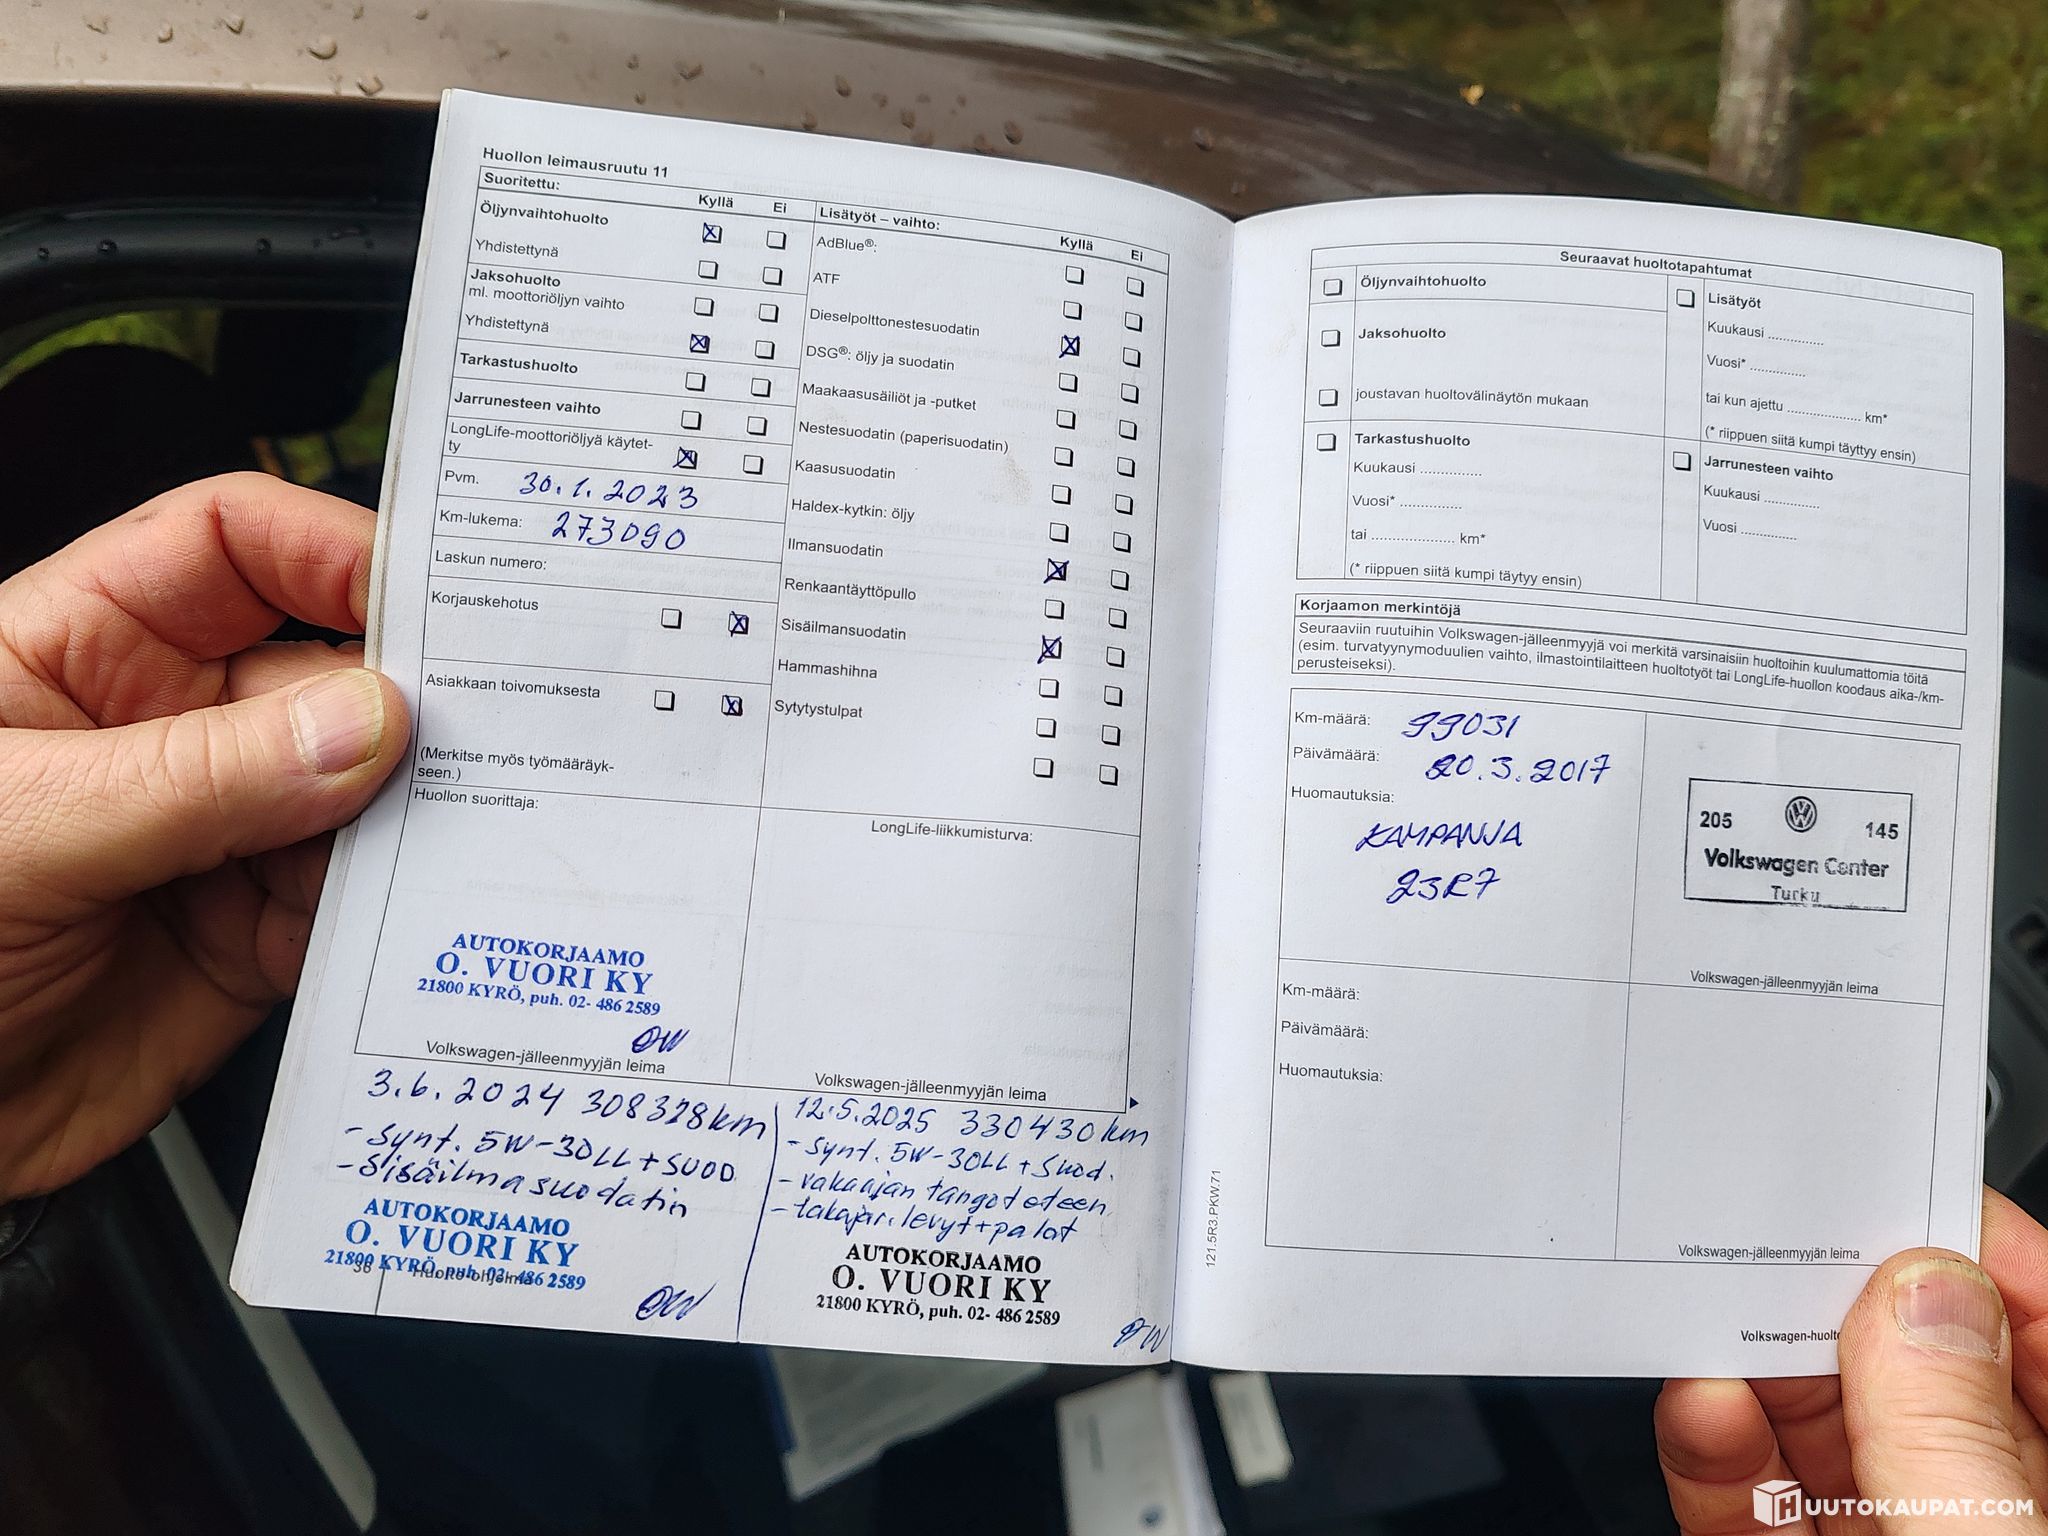 Huollon leimausruutu 11
Suoritettu:
Kyllä Ei
Öljynvaihtohuolto
Yhdistettynä
Jaksohuolto
ml. moottoriöljyn vaihto
Yhdistettynä
Tarkastushuolto
Jarrunesteen vaihto
LongLife-moottoriöljyä käytet-
ty
Pvm. 30.1.2023
Km-lukema: 273090
Laskun numero:
Korjauskehotus
Asiakkaan toivomuksesta
(Merkitse myös työmääräyk-
seen.)
Huollon suorittaja:
AUTOKORJAAMO
O. VUORI KY
21800 KYRÖ, puh. 02- 486 2589
OW
Volkswagen-jälleenmyyjän leima
Lisätyöt – vaihto:
Kyllä Ei
AdBlue®:
ATF
Dieselpolttonestesuodatin
DSG®: öljy ja suodatin
Maakaasusäiliöt ja -putket
Nestesuodatin (paperisuodatin)
Kaasusuodatin
Haldex-kytkin: öljy
Ilmansuodatin
Renkaantäyttöpullo
Sisäilmansuodatin
Hammashihna
Sytytystulpat
LongLife-liikkumisturva:
Volkswagen-jälleenmyyjän leima
3.6.2024 308328km
- synt. 5W-30LL + SUOD.
- Sisäilmasuodatin
AUTOKORJAAMO
O. VUORI KY
21800 KYRÖ, puh. 02- 486 2589
36 Huolto-ohjelma
OW
12.5.2025 330430km
- Synt. 5W-30LL + Suod.
- vakaajan tangot eteen
- takajar. levyt + palat
AUTOKORJAAMO
O. VUORI KY
21800 KYRÖ, puh. 02- 486 2589
OW
121.5R3.PKW.71
Seuraavat huoltotapahtumat
Öljynvaihtohuolto
Jaksohuolto
joustavan huoltovälinäytön mukaan
Tarkastushuolto
Kuukausi ..............
Vuosi* ..............
tai .................... km*
(* riippuen siitä kumpi täytyy ensin)
Lisätyöt
Kuukausi ..............
Vuosi* ..............
tai kun ajettu .................. km*
(* riippuen siitä kumpi täyttyy ensin)
Jarrunesteen vaihto
Kuukausi ..............
Vuosi ..............
Korjaamon merkintöjä
Seuraaviin ruutuihin Volkswagen-jälleenmyyjä voi merkitä varsinaisiin huoltoihin kuulumattomia töitä
(esim. turvatyynymoduulien vaihto, ilmastointilaitteen huoltotyöt tai LongLife-huollon koodaus aika-/km-
perusteiseksi).
Km-määrä: 99031
Päivämäärä: 20.3.2017
Huomautuksia:
KAMPANJA
23R7
205 145
Volkswagen Center
Turku
Volkswagen-jälleenmyyjän leima
Km-määrä:
Päivämäärä:
Huomautuksia:
Volkswagen-jälleenmyyjän leima
Volkswagen-huolto
HUUTOKAUPAT.COM